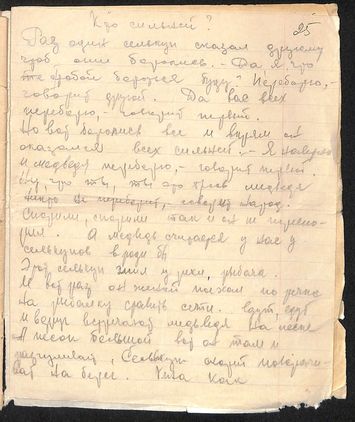 Кто сильней?
25
Раз один селькуп сказал другому
чтоб они боролись. - Да я, что
же с тобой бороться буду? Переборю, -
говорит другой. Да вас всех
переборю, - говорит первый.
Но вот боролись все и впрям он
оказался всех сильней. - Я наверно
и медведя переборю, - говорит первый.
Ну, что ты, ты это брось медведя
никто не переборит, - говорит народ.
Спорили, спорили так и он не переспо-
рил. А медведь считается у нас у
селькупов вроде бы
Этот селькуп жил у реки, рыбача.
И вот раз он с женой поехал по речке
на рыбалку ставить сети. Едут, едут
и вдруг встречают медведя на песке
А песок большой вот он там и
разгуливает. Селькуп скорей поворачи-
вает на берег.